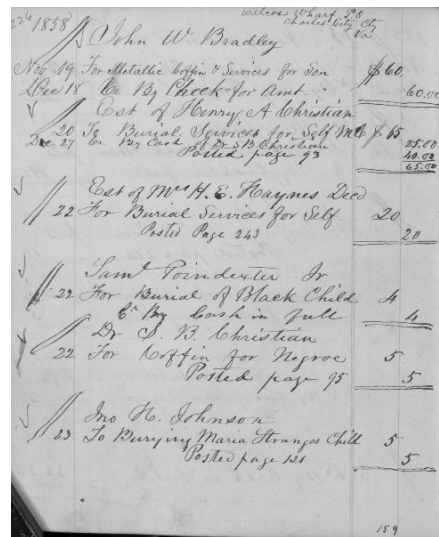 226 1858 Willcoxs Wharf P.O
Charles City Cty
Va
John W Bradley
Nov 19 For Metallic Coffin & Services for Son $60.
Dec 18 Cr By Check for Amt 60.00
Est of Henry A Christian
20 To Burial Services for Self MC $65
Dec 27 Cr By Cash of Dr S B Christian 25.00
Posted page 93 40.00
65.00
Est of Mrs H. E. Haynes Decd
22 For Burial Services for Self 20
Posted Page 243 20
Saml Poindexter Jr
22 For Burial of Black Child 4
Cr By Cash in full 4
Dr S. B. Christian
22 For Coffin for Negroe 5
Posted page 95 5
Jno H. Johnson
23 To Burying Maria Stranges Child 5
Posted page 121 5
159